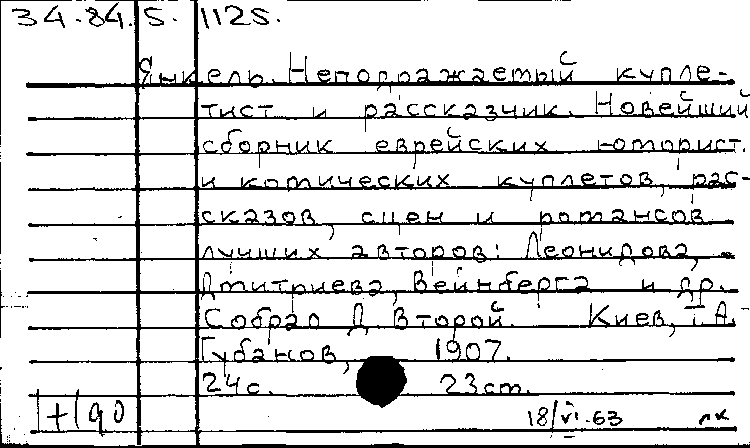 34.84.5. 1125.
Янкель. Неподражаемый купле-
тист и рассказчик. Новейший
сборник еврейских юморист.
и комических куплетов, рас-
сказов, сцен и романсов
лучших авторов: Леонидова,
Дмитриева, Вейнберга и др.
Собрал Д. Второй. Киев, Т.А.
Губанов, 1907.
24с. 23cm.
1+190
18/VI.63 лк